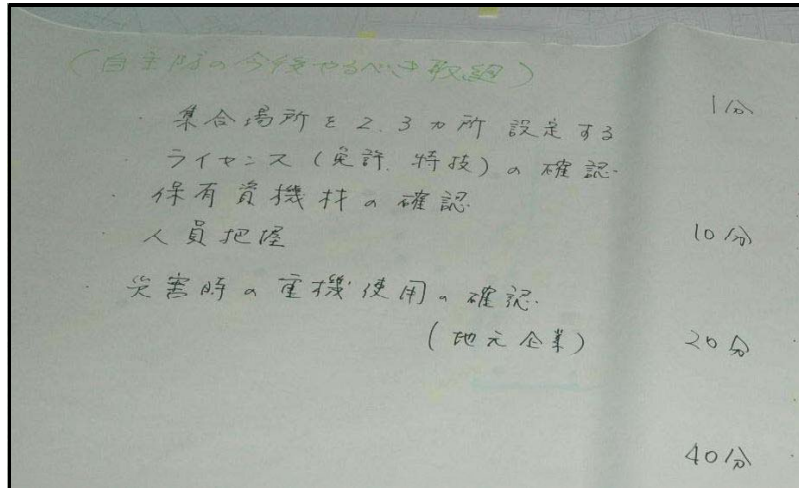 (自主防の今後やるべき取組)
・集合場所を2.3カ所設定する
・ライセンス(免許.特技)の確認
・保有資機材の確認
・人員把握
・災害時の重機使用の確認
(地元企業)
1分
10分
20分
40分